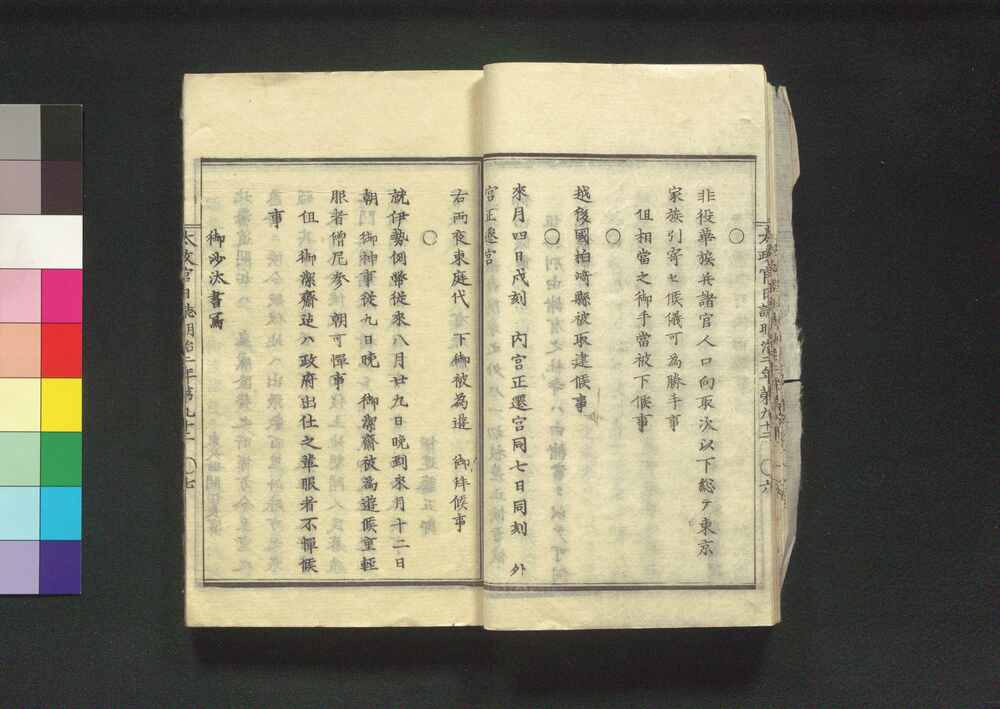 ○
非役華族兵諸官人口向取次以下総テ東京
家族引寄セ候儀可為勝手事
但相當之御手當被下候事
○
越後國柏﨑縣被取建候事
○
來月四日戌刻 內宮正遷宮同七日同刻 外
宮正遷宮
右両夜東庭代 下御被為遊 御拜候事
○
就伊勢例幣從來八月廿九日晚到來月十二日
朝 御神事從九日晚 御潔齋被為遊候重輕
服者僧尼參 朝可憚事
但 御潔齋迠ハ政府出仕之輩服者不憚候
事
御沙汰書寫
太政官日誌明治二年第九十二 ○七